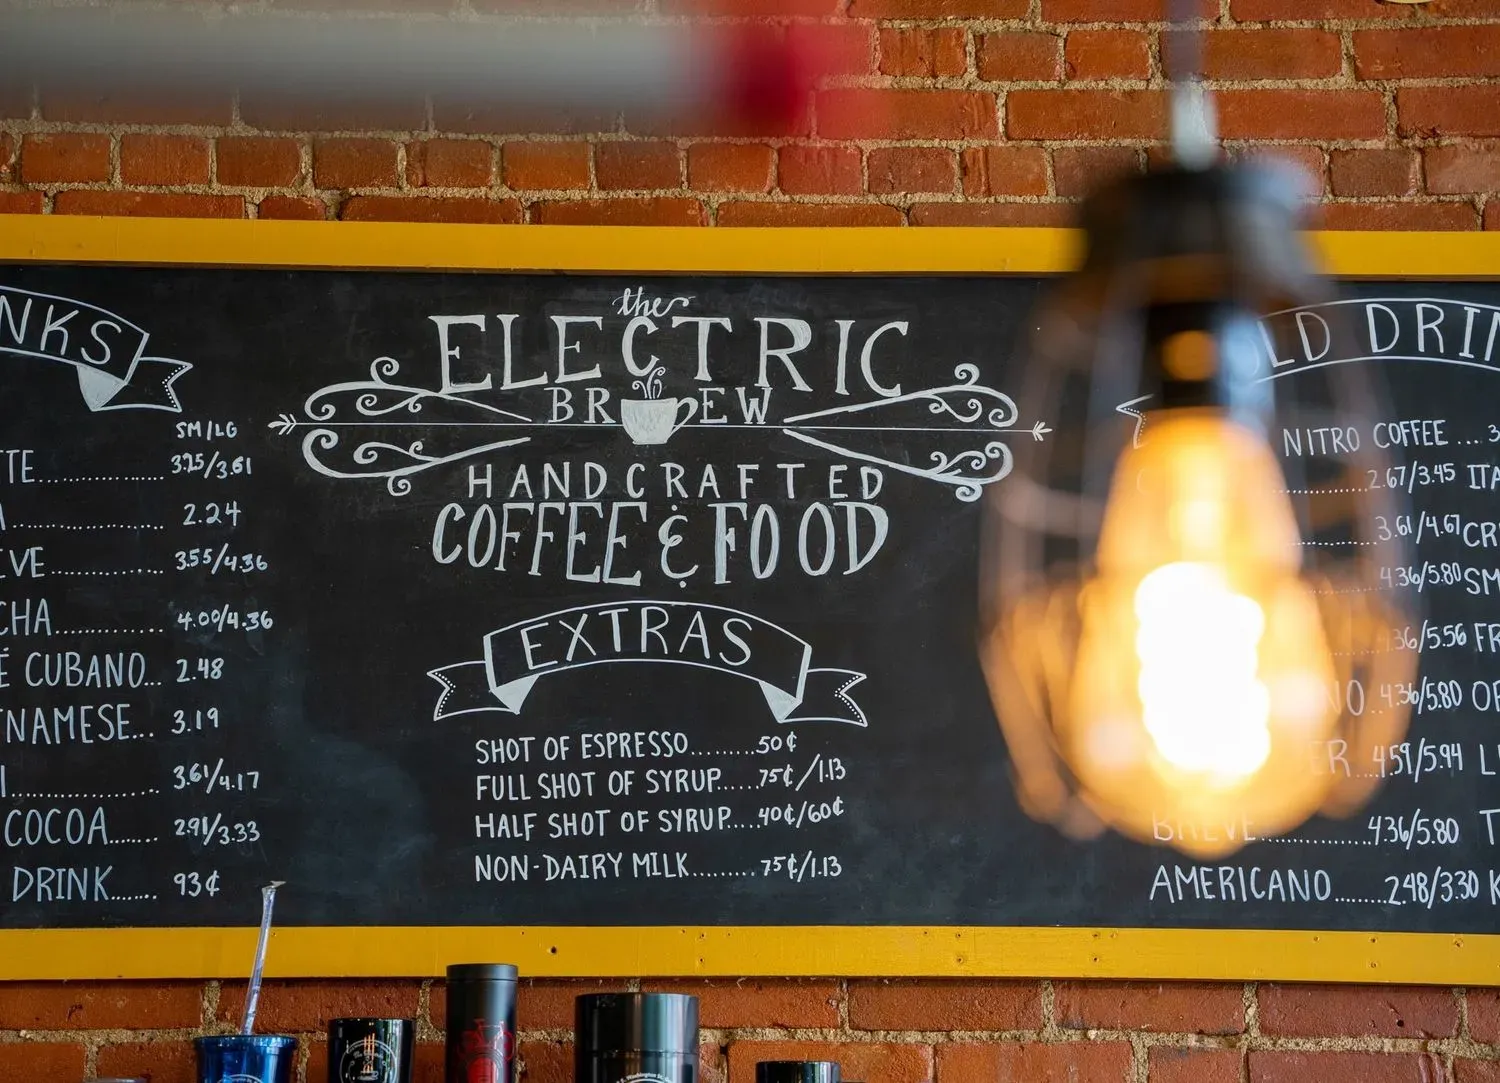 NKS
SM/LG
TTE 3.25/3.61
2.24
EVE 3.55/4.36
CHA 4.00/4.36
É CUBANO... 2.48
TNAMESE... 3.19
I 3.61/4.17
COCOA 2.91/3.33
DRINK 93¢
the
ELECTRIC
BREW
HANDCRAFTED
COFFEE & FOOD
EXTRAS
SHOT OF ESPRESSO........50¢
FULL SHOT OF SYRUP....75¢/1.13
HALF SHOT OF SYRUP.....40¢/60¢
NON-DAIRY MILK.........75¢/1.13
LD DRIN
NITRO COFFEE ... 3
2.67/3.45 ITA
3.61/4.67 CR
4.36/5.80 SM
36/5.56 FR
NO..4.36/5.80 OR
ER...4.59/5.94 L
BREVE..............4.36/5.80 T
AMERICANO.......2.48/3.30 K